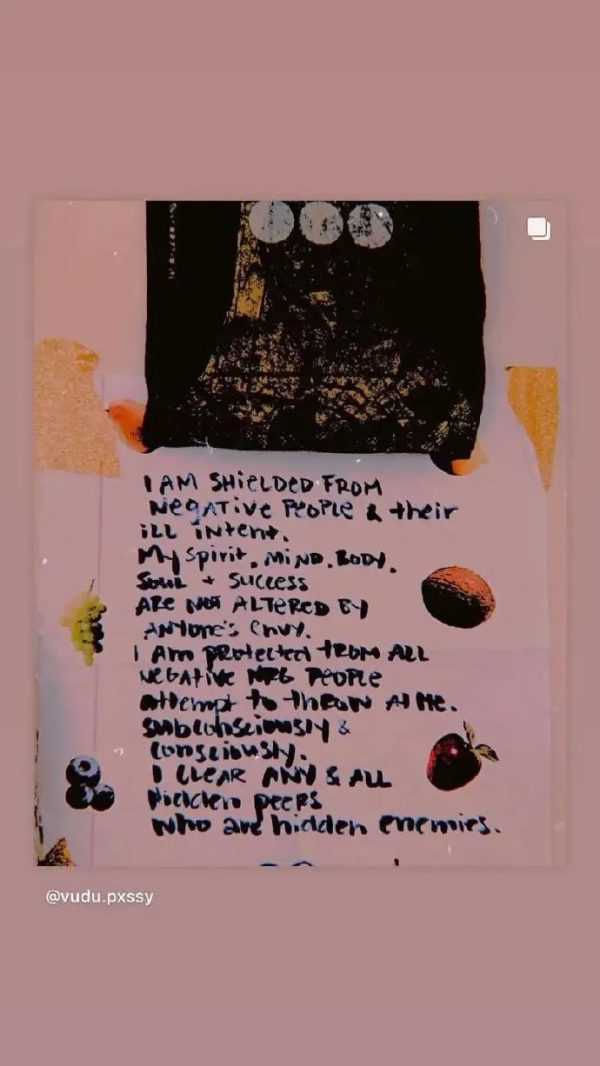 I AM SHIELDED FROM
NEGATIVE PEOPLE & their
ILL INTENT.
My Spirit. MIND. BODY.
SOUL + SUCCESS
ARE NOT ALTERED BY
ANYONE'S ENVY.
I AM PROTECTED FROM ALL
NEGATIVE NRG PEOPLE
attempt to THROW AT ME.
SUBCONSCIOUSLY &
CONSCIOUSLY.
I CLEAR ANY & ALL
Hidden peeps
WHO are hidden enemies.
@vudu.pxssy